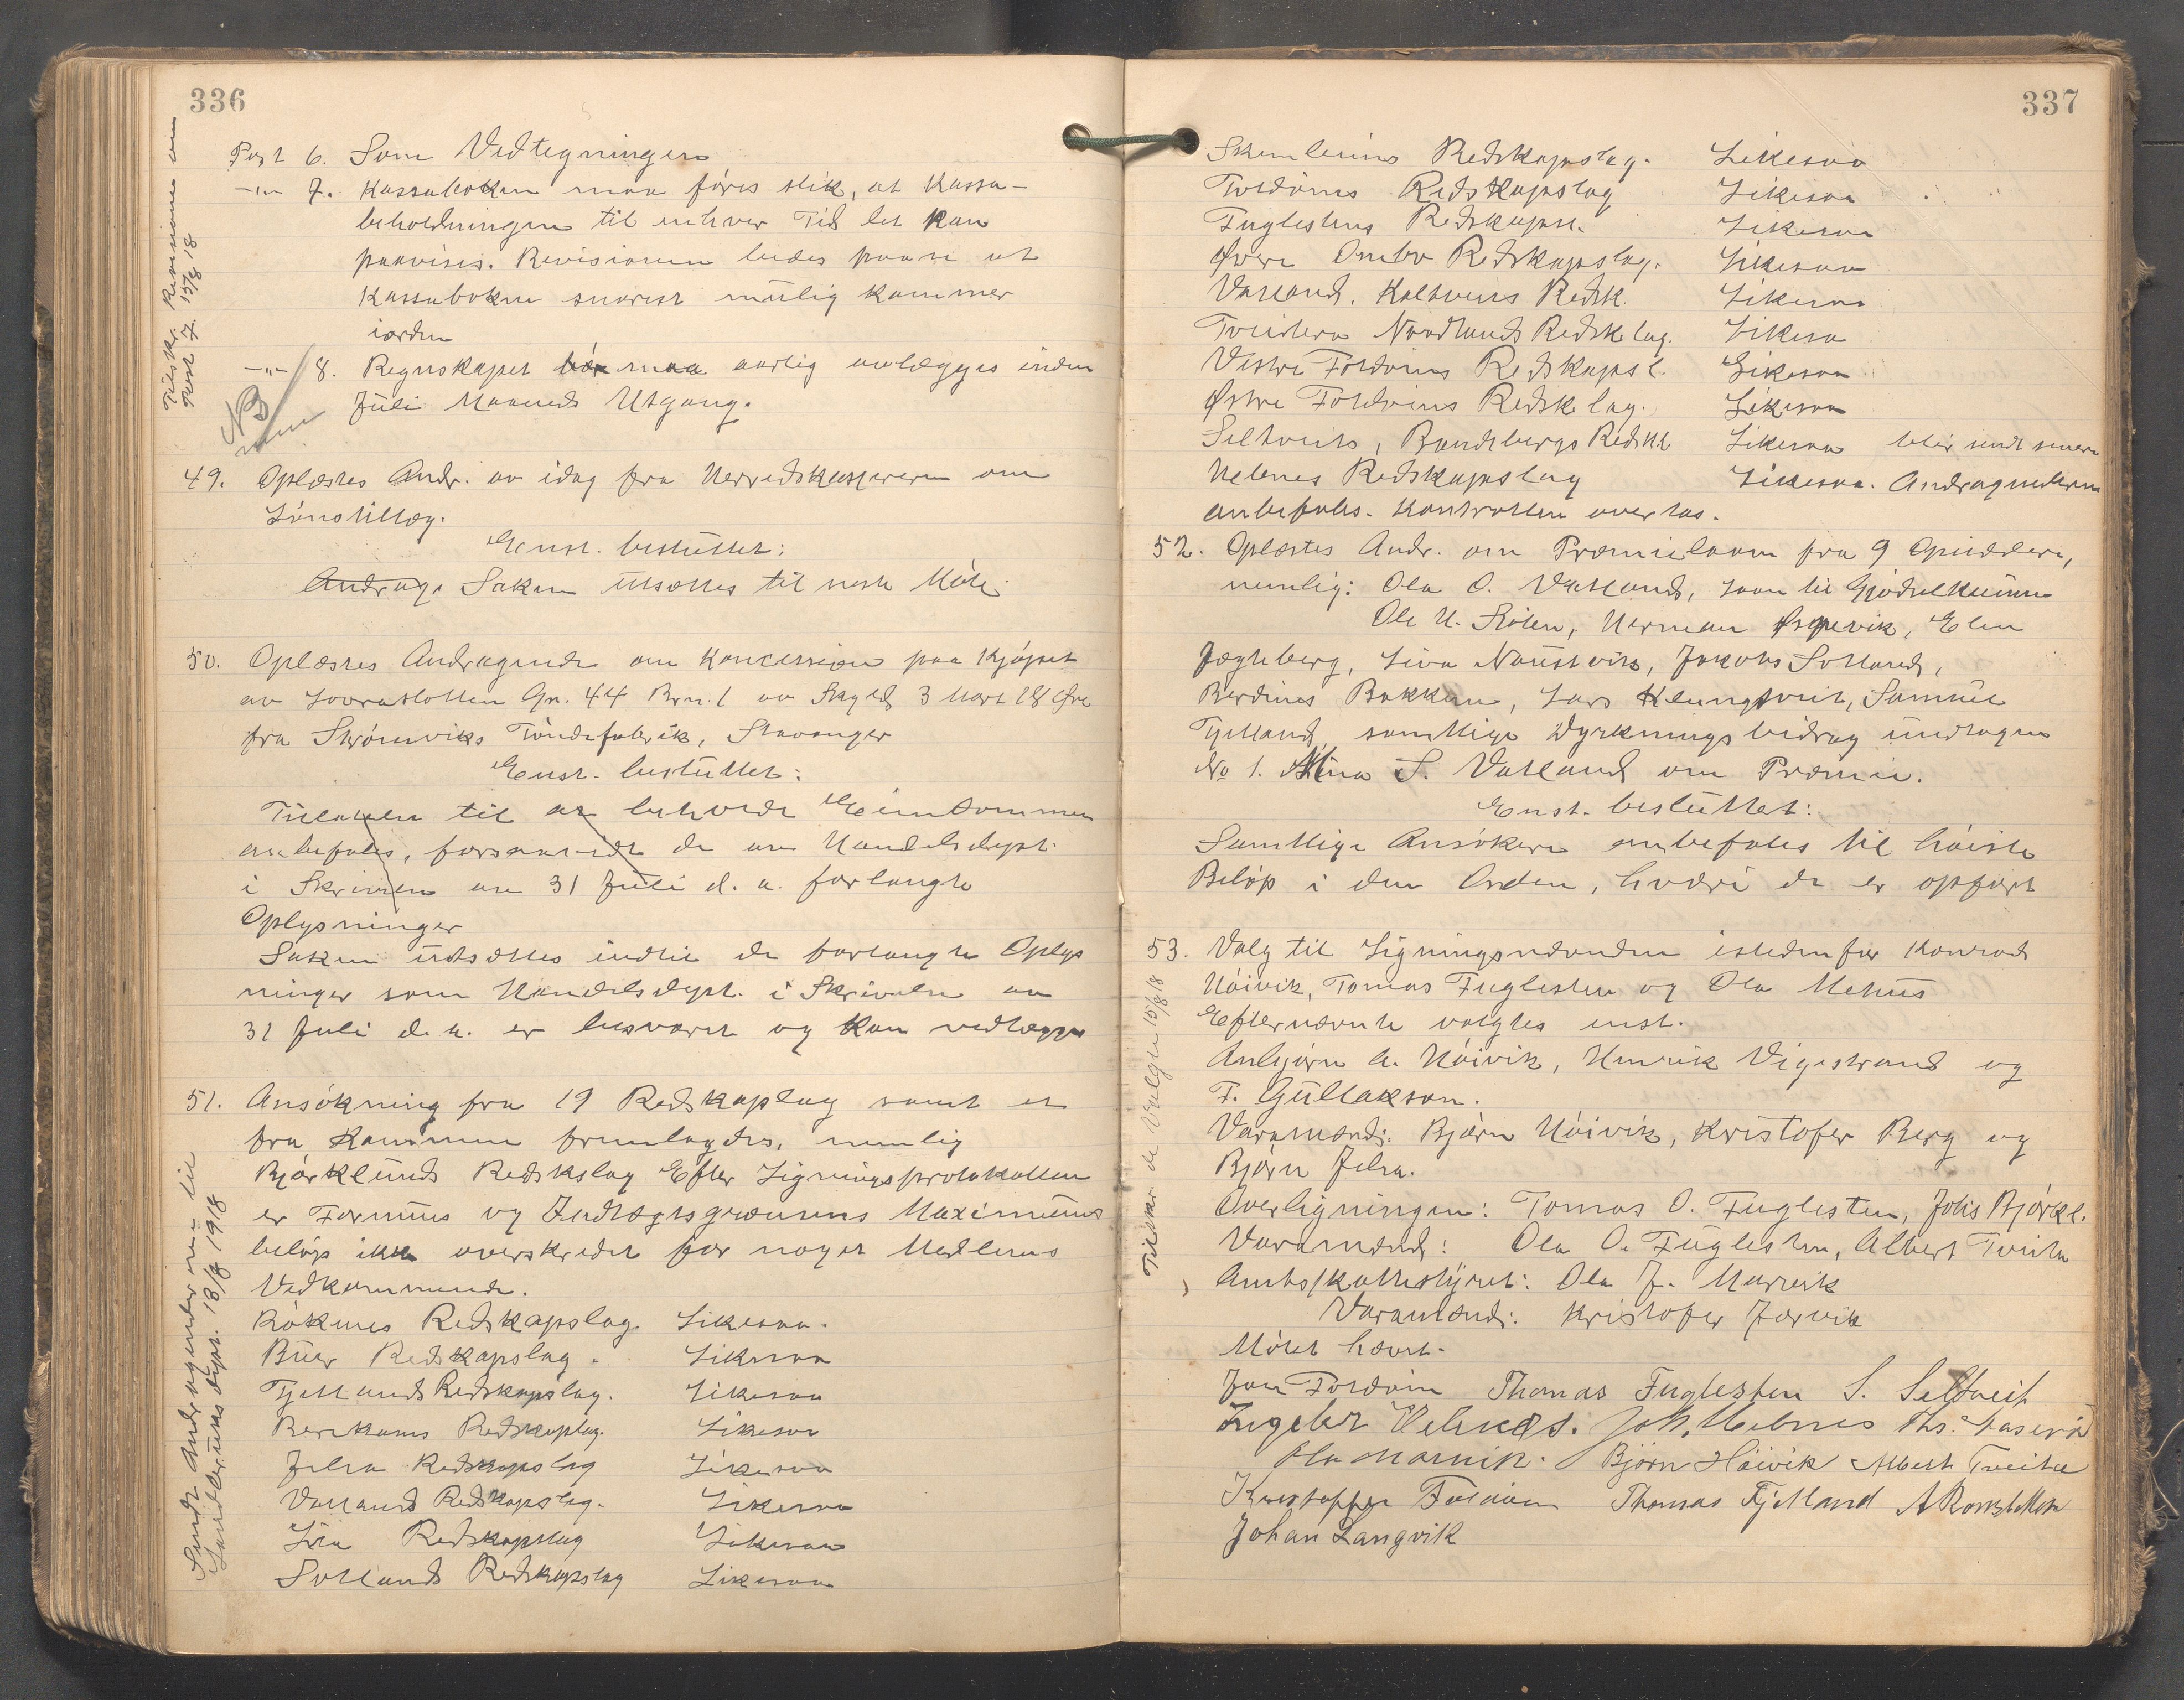 336
Post 6. Som Vedtegningen
-"- 7. Kassaboken maa føres slik, at Kassa-
beholdningen til enhver Tid let kan
paavises. Revisionen bedes paase at
Kassaboken snarest mulig kommer
iorden
-"- 8. Regnskapet bør maa aarlig avlægges inden
Juli Maaneds Utgang.
NB
Tilskr. Revisionen om
Post 7. 15/8 18
49. Oplæstes Andr. av idag fra Herredskassereren om
Lønstillæg.
Enst. besluttet:
Androge Saken utsættes til neste Møte.
50. Oplæstes Andragende om Koncession paa Kjøpet
av Lovraslotten Gn. 44 Brn. 1 av Skyld 3 Mark 18 Øre
fra Strømviks Tøndefabrik, Stavanger
Enst. besluttet:
Tilatelse til at beholde Eiendommen
anbefales, forsaavidt de av Handelsdept.
i Skrivelse av 31 Juli d. a. forlangte
Oplysninger
Saken utsættes indtil de forlangte Oplys
ninger som Handelsdept. i Skrivelse av
31 Juli d. a. er besvaret og kan vedlægges
51. Ansøkning fra 19 Redskaplag samt et
fra Kommunen fremlagdes, nemlig
Bjørklunds Redskslag Efter Ligningsprotokollen
er Formues og Indtægtsgrænsens Maximums
beløp ikke overskredet for noget Medlems
Vedkommende.
Røknes Redskapslag. Likesaa.
Buer Redskapslag. Likesaa
Tjellands Redskapslag. Likesaa
Berekams Redskaplag. Likesaa
Jelsa Redskapslag Likesaa
Vatlands Redskapslag. Likesaa
Lia Redskapslag Likesaa
Sollands Redskapslag Likesaa
Sendt Andragender m.v. til
Landbruks dept. 18/8 1918
337
Skemleims Redskapslag. Likesaa
Foldøens Redskapslag Likesaa
Fuglestens Redskapsl. Likesaa
Øvre Ombo Redskapslag. Likesaa
Vatland, Kaltveits Redsk. Likesaa
Tveiteraa Nordlands Redsk lag. Likesaa
Vestre Foldøens Redskapsl. Likesaa
Østre Foldøens Redsk lag. Likesaa
Seltveits, Bandsbergs Redskl Likesaa blir sendt senere
Helgnes Redskapslag Likesaa. Andragenderne
anbefales. Kontrollen overtas.
52. Oplæstes Andr. om Præmielaan fra 9 Opsiddere,
nemlig: Ola O. Vatland, Laan til Gjødselkum
Ole H. Sølen, Herman Espevik, Elen
Jægteberg, Liva Naustvik, Jakobs Solland,
Berdines Bakken, Lars Klungtveit, Samuel
Tjelland, samtlige Dyrkningsbidrag undtagen
No 1. Alina S. Vatland om Præmie.
Enst. besluttet:
Samtlige Ansøkere anbefales til høieste
Beløp i den Orden, hvori de er opført
53. Valg til Ligningsnævnden istedenfor Konrad
Høivik, Tomas Fuglesten og Ola Mehus
Efternævnte valgtes enst.
Anbjørn A. Høivik, Henrik Vigestrand og
T. Gullakson.
Varamænd: Bjørn Høivik, Kristofer Berg og
Bjørn Jelsa.
Overligningen: Tomas O. Fuglesten, Johs Bjørkl.
Varamænd: Ola O. Fuglesten, Albert Tveita
Amtsskattestyret: Ola J. Marvik
Varamænd: Kristofer Jørvik
Møtet hævet.
Tilskr. de Valgte 15/8 18
Jon Foldøin Thomas Fuglesten S. Seltveit
Ingebr Helgnes. Joh. Helgnes Ths.
Ola Marvik. Bjørn Høivik Albert Tveita
Kristoffer Foldøen Thomas Tjelland
Johan Langvik